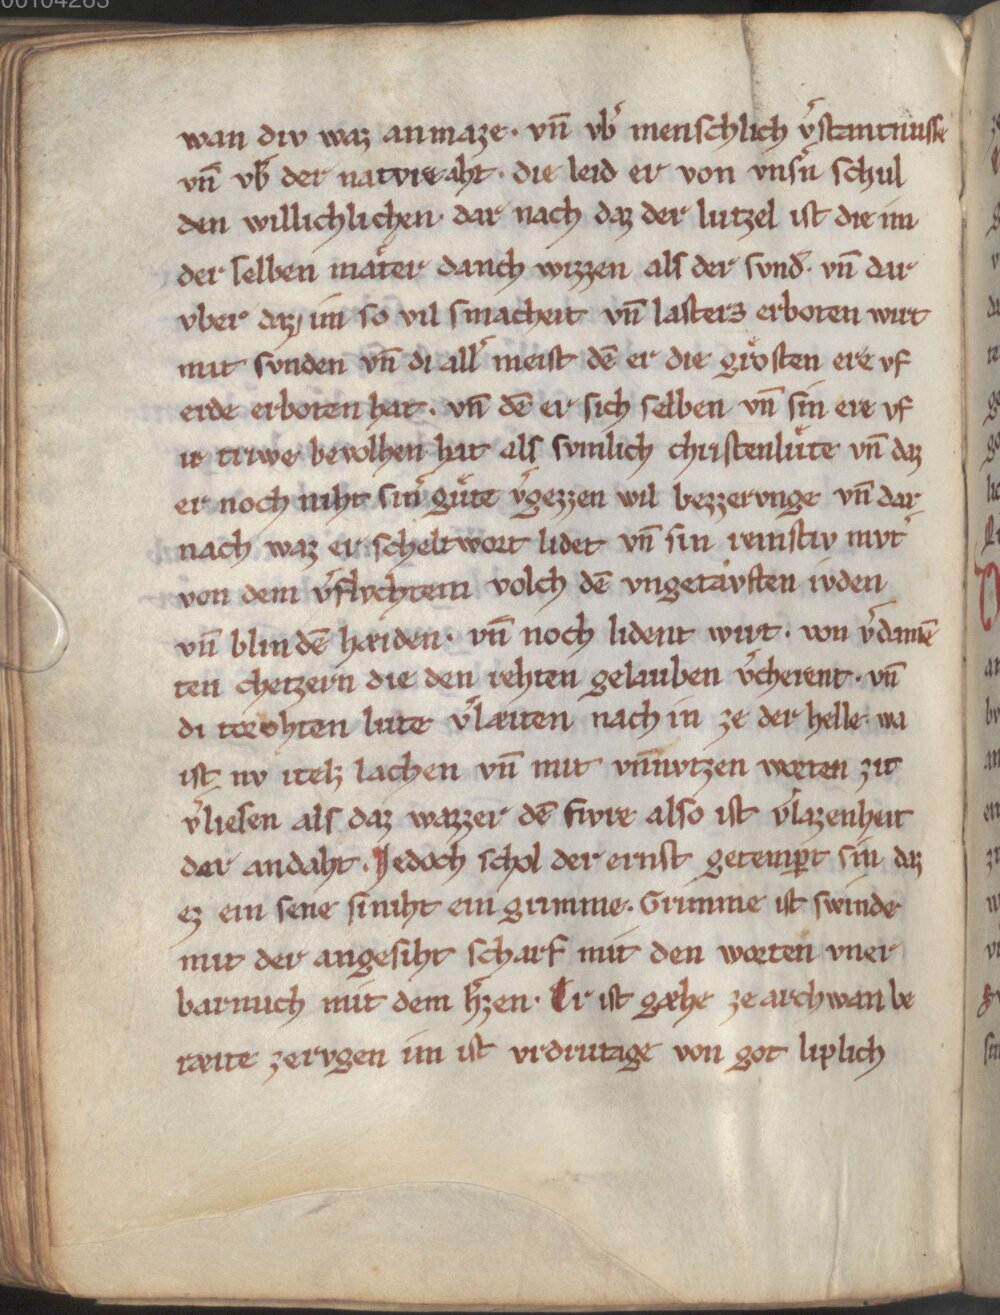 wan div waz anmaze. vn̄ vb̕ menschlich v̕stantnusse
vn̄ vb̕ der natvre aht. die leid er von vnsn̕ schul
den willichlichen. dar nach daz der lutzel ist die im
der selben mater danch wizzen als der svnd̕. vn̄ dar
vber daz im so vil smacheit vn̄ lasters erboten wirt
mit svnden vn̄ di all̕ meist dē er die grosten ere vf
erde erboten hat. vn̄ dē er sich selben vn̄ sin ere vf
ir triwe bevolhen hat als svmlich christenlůte vn̄ daz
er noch niht sin̕ gůte v̕gezzen wil bezzervnge vn̄ dar
nach waz er scheltwort lidet vn̄ sin reinstiv mvt̕
von dem v̕flvchtem volch dē vngetavften ivden
vn̄ blindē haiden. vn̄ noch lident wirt. von v̕damē
ten chetzern die den rehten gelauben v̕cherent. vn̄
di torohten lute v̕læiten nach in ze der helle. wa
ist nv itelz lachen vn̄ mit vn̄nvtzen worten zit
v̕liesen als daz wazzer dē fivre also ist v̕lazenheit
der andaht. Jedoch schol der ernst getemp̄t sin daz
ez ein sene si niht ein grimme. Grimme ist swinde
mit der angesiht scharf mit den worten vner
barmich mit dem h̕zen. Er ist gæhe ze archwan be
ræite ze rvgen im ist vrdrutzige von got liplich